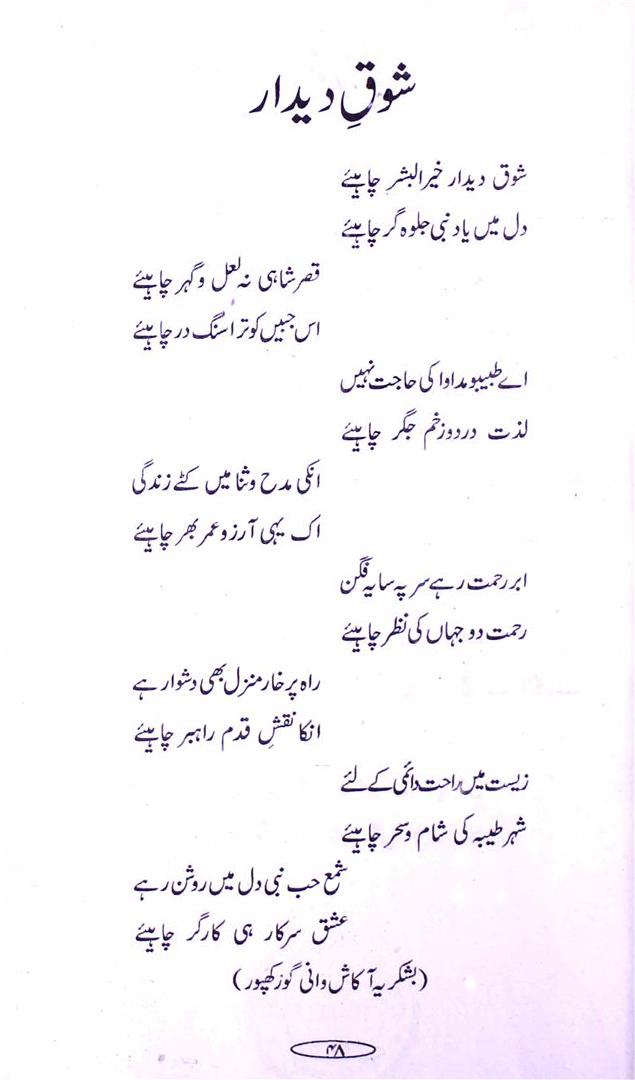 شوقِ دیدار
شوق دیدار خیرالبشر چاہیئے
دل میں یاد نبی جلوہ گر چاہیئے
قصر شاہی نہ لعل و گہر چاہیئے
اس جبیں کو ترا سنگ در چاہیئے
اے طبیبو مداوا کی حاجت نہیں
لذت درد و زخم جگر چاہیئے
انکی مدح و ثنا میں کٹے زندگی
اک یہی آرزو عمر بھر چاہیئے
ابر رحمت رہے سر پہ سایہ فگن
رحمت دو جہاں کی نظر چاہیئے
راہ پر خار منزل بھی دشوار ہے
انکا نقشِ قدم راہبر چاہیئے
زیست میں راحت دائمی کے لئے
شہر طیبہ کی شام و سحر چاہیئے
شمع حب نبی دل میں روشن رہے
عشق سرکار ہی کارگر چاہیئے
(بشکریہ آکاش وانی گورکھپور)
۴۸